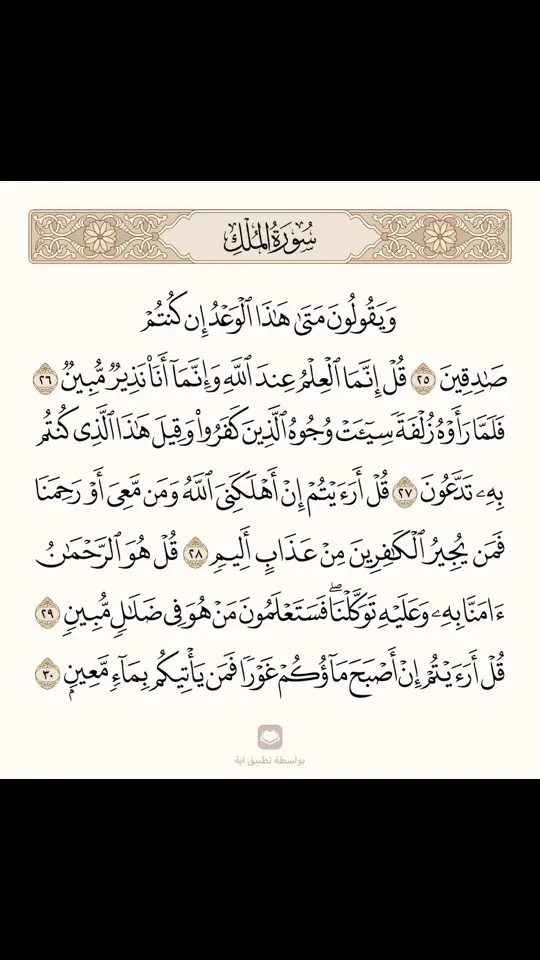 سُورَةُ المُلۡكِ
وَيَقُولُونَ مَتَىٰ هَٰذَا ٱلۡوَعۡدُ إِن كُنتُمۡ
صَٰدِقِينَ ٢٥ قُلۡ إِنَّمَا ٱلۡعِلۡمُ عِندَ ٱللَّهِ وَإِنَّمَآ أَنَا۠ نَذِيرٞ مُّبِينٞ ٢٦
فَلَمَّا رَأَوۡهُ زُلۡفَةٗ سِيٓـَٔتۡ وُجُوهُ ٱلَّذِينَ كَفَرُواْ وَقِيلَ هَٰذَا ٱلَّذِي كُنتُم
بِهِۦ تَدَّعُونَ ٢٧ قُلۡ أَرَءَيۡتُمۡ إِنۡ أَهۡلَكَنِيَ ٱللَّهُ وَمَن مَّعِيَ أَوۡ رَحِمَنَا
فَمَن يُجِيرُ ٱلۡكَٰفِرِينَ مِنۡ عَذَابٍ أَلِيمٖ ٢٨ قُلۡ هُوَ ٱلرَّحۡمَٰنُ
ءَامَنَّا بِهِۦ وَعَلَيۡهِ تَوَكَّلۡنَاۖ فَسَتَعۡلَمُونَ مَنۡ هُوَ فِي ضَلَٰلٖ مُّبِينٖ ٢٩
قُلۡ أَرَءَيۡتُمۡ إِنۡ أَصۡبَحَ مَآؤُكُمۡ غَوۡرٗا فَمَن يَأۡتِيكُم بِمَآءٖ مَّعِينِۭ ٣٠
بواسطة تطبيق آية